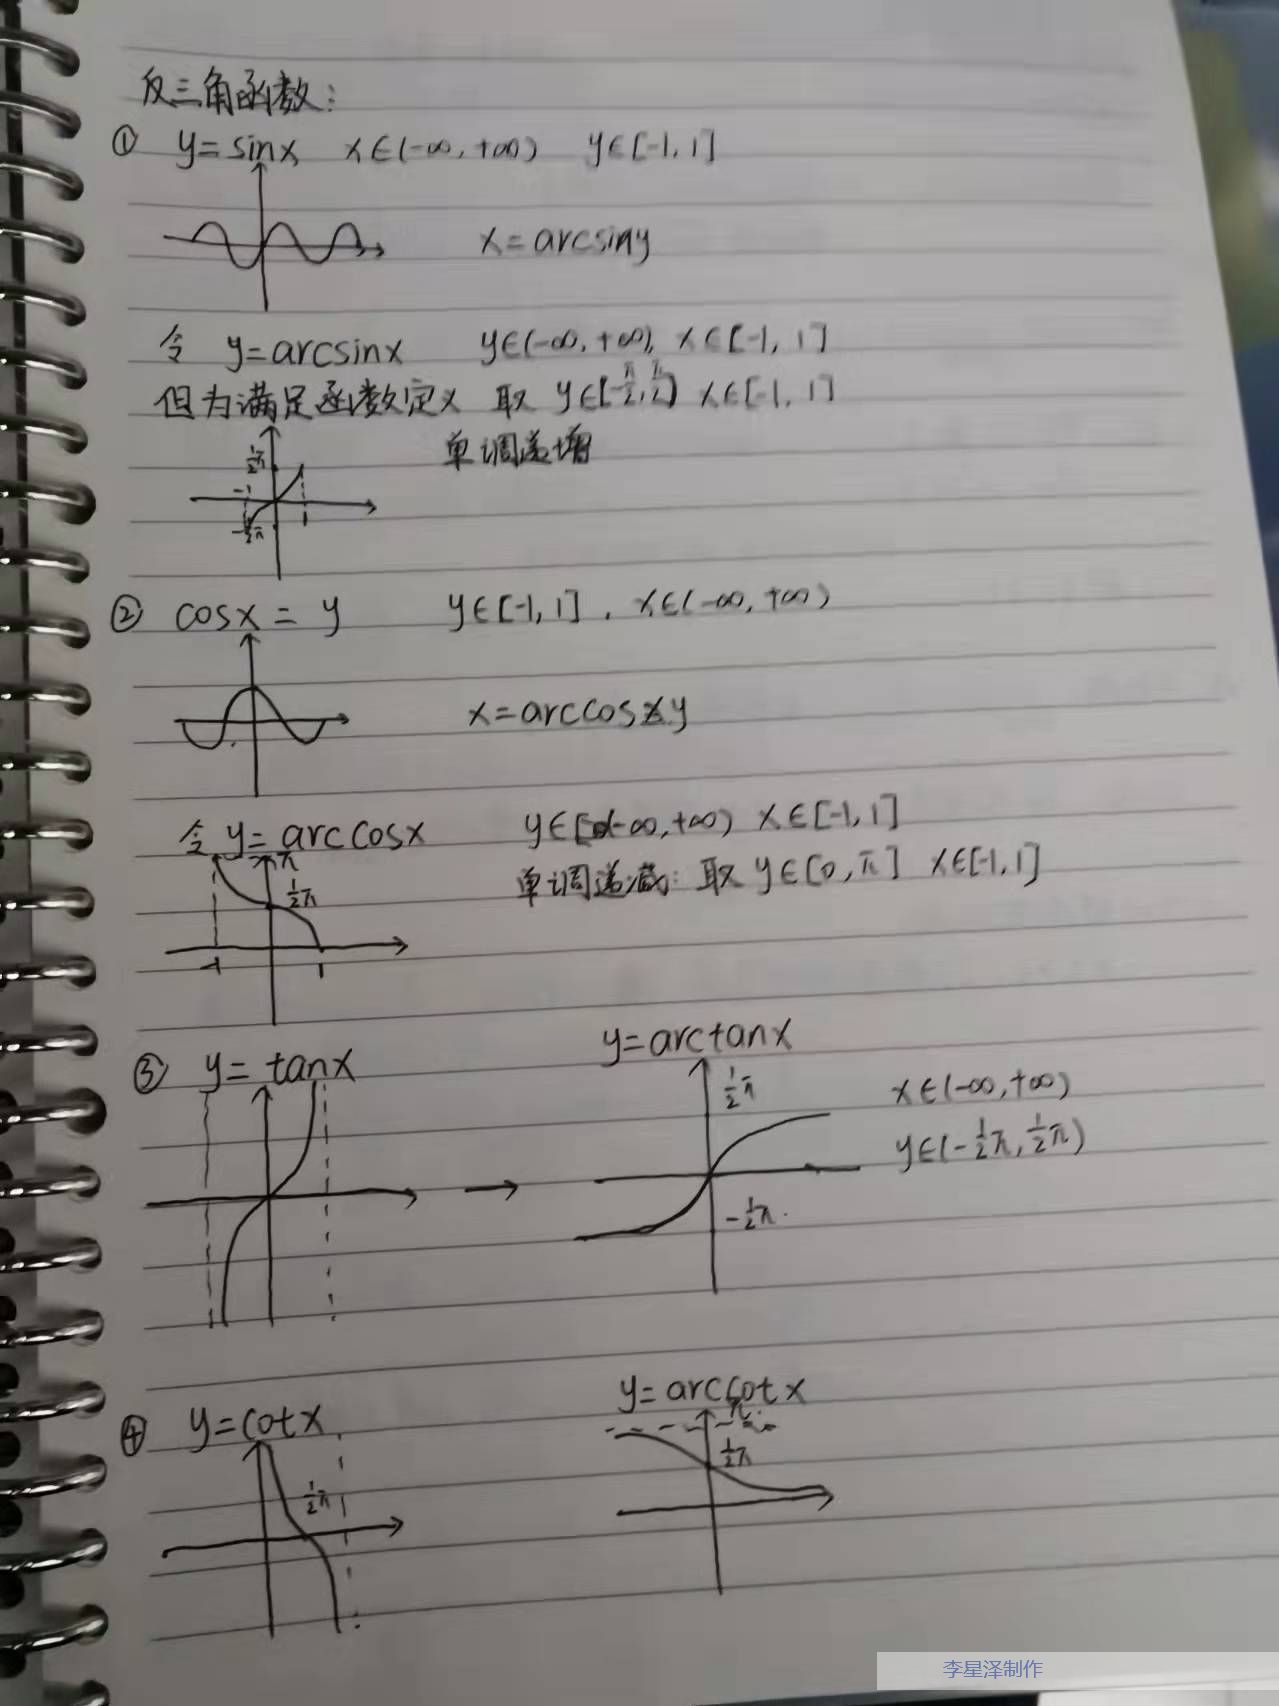 反三角函数:
① y=sinx x∈(-∞,+∞) y∈[-1,1]
x=arcsiny
令 y=arcsinx y∈(-∞,+∞), x∈[-1,1]
但为满足函数定义 取 y∈[-π/2,π/2] x∈[-1,1]
单调递增
½π
-1
1
-½π
② cosx=y y∈[-1,1], x∈(-∞,+∞)
x=arccosy
令 y=arccosx y∈(-∞,+∞) x∈[-1,1]
单调递减: 取 y∈[0,π] x∈[-1,1]
π
½π
-1 1
③ y=tanx → y=arctanx
½π
x∈(-∞,+∞)
y∈(-½π,½π)
-½π
④ y=cotx y=arccotx
π
½π ½π
李星泽制作